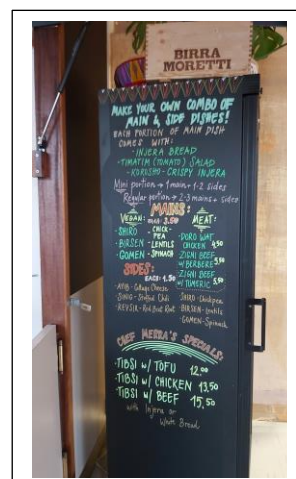 BIRRA
MORETTI
MAKE YOUR OWN COMBO OF
MAIN & SIDE DISHES!
EACH PORTION OF MAIN DISH
COMES WITH:
- INJERA BREAD
- TIMATIM (TOMATO) SALAD
- KOROSHO - CRISPY INJERA
Mini portion → 1 main + 1-2 sides
Regular portion → 2-3 mains + sides
MAINS:
VEGAN: EACH 3.50
- SHIRO - CHICK-PEA
- BIRSEN - LENTILS
- GOMEN - SPINACH
MEAT:
- DORO WAT
CHICKEN 4,50
ZIGNI BEEF
W/ BERBERE 5,50
ZIGNI BEEF
W/ TUMERIC 5,50
SIDES:
EACH: 1.50
- AYIB - Cottage Cheese
- Stuffed Chili
- KEYSIR - Red Beet Root
- SHIRO - Chickpea
- BIRSEN - Lentils
- GOMEN - Spinach
CHEF MERRA'S SPECIALS:
- TIBSI W/ TOFU 12,00
- TIBSI W/ CHICKEN 13,50
- TIBSI W/ BEEF 15,50
with Injera or
White Bread